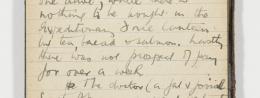 nothing to be bought in the
Expeditionary Force Canteen
but tea, bread & salmon. Lastly
there was not prospect of pay
for over a week
The doctor (a fat & jovial